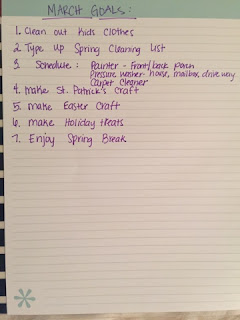 MARCH GOALS:
1. Clean out Kids Clothes
2. Type up Spring Cleaning List
3. Schedule: Painter - Front/back porch
Pressure washer - house, mailbox, drive way
Carpet Cleaner
4. Make St. Patrick's Craft
5. make Easter Craft
6. make Holiday treats
7. Enjoy Spring Break